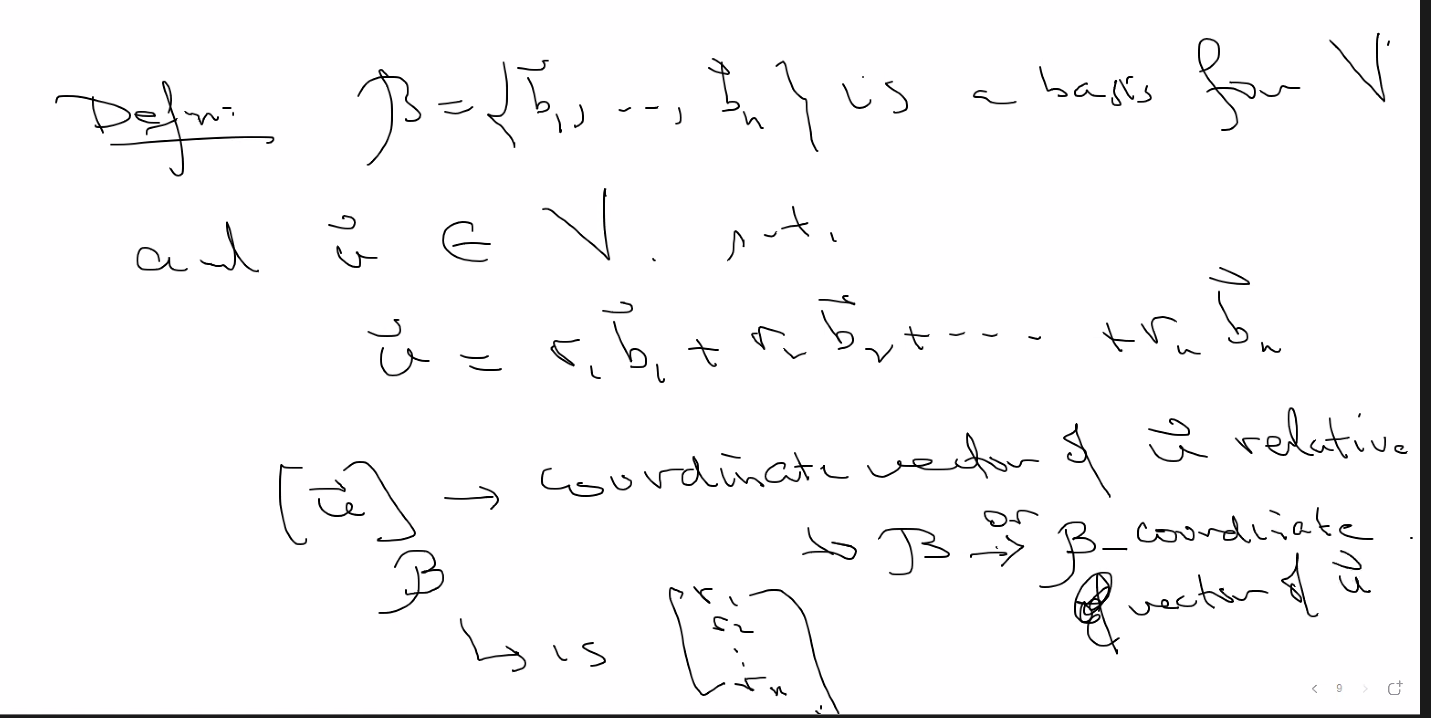 Defn: β = {b⃗₁, ..., b⃗ₙ} is a basis for V
and u⃗ ∈ V. s.t.
u⃗ = r₁ b⃗₁ + r₂ b⃗₂ + ... + rₙ b⃗ₙ
[u⃗]_β → coordinate vector of u⃗ relative
to β → or β-coordinate
vector of u⃗
↳ is [r₁
r₂
⋮
rₙ]
< 9 >